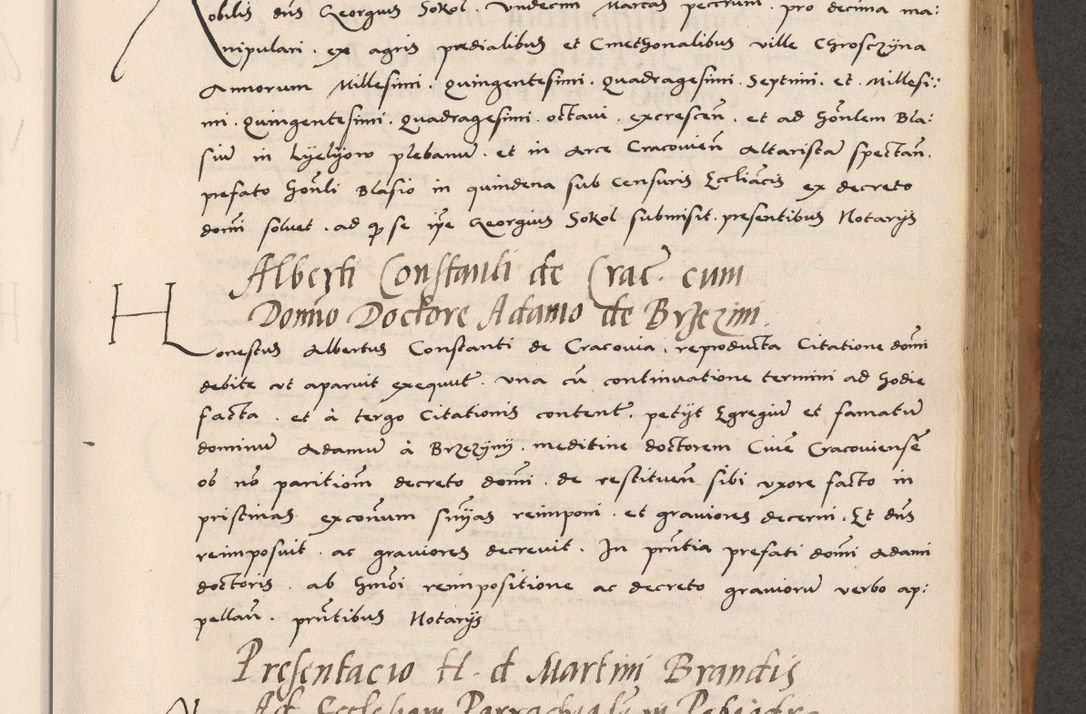 Nobilis dns Georgius Sokol. Undecim Marcas peccnium. pro decima ma:
nipulari. ex agris prædialibus et Cmethonalibus ville Chrosczyna
Annorum Millesimi. Quingentesimi. Quadragesimi. Septimi. et. Millesi:
mi. Quingentesimi. Quadragesimi. octavi. excrescen̄. et ad hōnlem Bla:
siū in Lyelyow plebanū. et in Arce Cracovien̄ Altaristā spectan̄.
prefato hōnli Blasio in quindena sub Censuris Eccliācis ex decreto
domi solvet. ad qp se ipē Georgius Sokol submisit. presentibus Notarys
Alberti Constanti de Crac. cum
Domīo Doctore Adamo de Brzezini
Honestus Albertus Constanti de Cracovia. reproducta Citatione domī
debite ut aparuit exequut. una cū continuatione termini ad hodie
facta. et à tergo Citationis content. petyt Egregiū et famatū
dominū Adamū à Brzezyny. meditine doctorem Civē Cracoviensē
ob nō paritiom decreto domī. de restituen̄ sibi uxore facto in
pristinas exconum snīas reimponi. et graviores decerni. Et dns
reimposuit. ac graviores decrevit. In prn̄tia prefati domī Adami
doctoris. ab hmōi reimpositione ac decreto graviorū verbo ap:
pellan̄. prn̄tibus Notarys
Presentacio H. d Martini Brandis
Ad Ecclesiam Parrochialē in